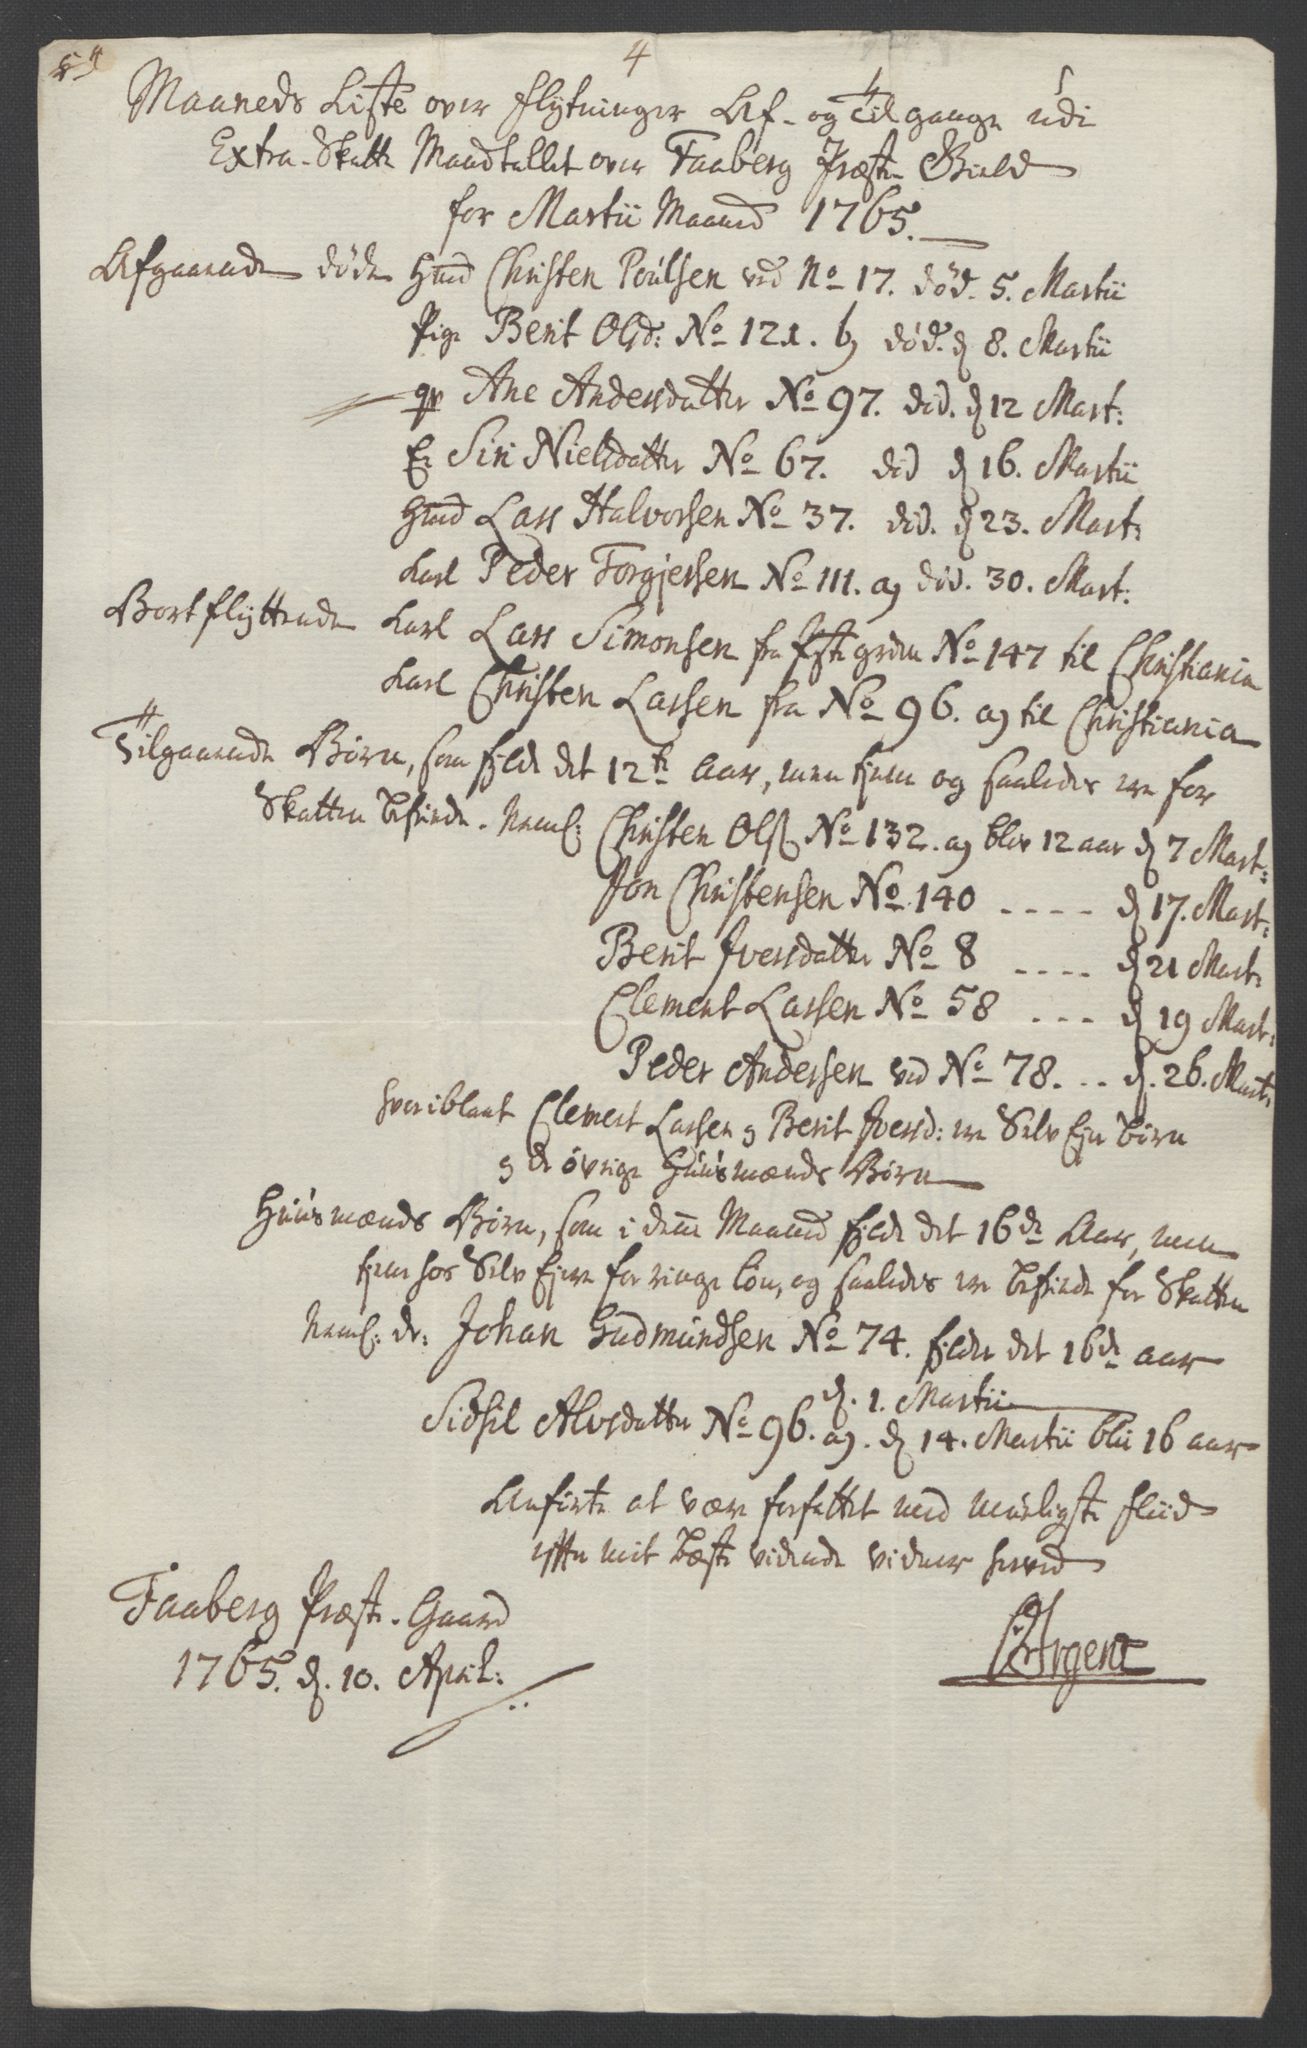 4
Maaneds Liste over flytninger Af- og Tilgange udi
Extra-Skatte Mandtallet over Faaberg Præste Gield
for Martii Maaned 1765.
Afgaaende døde Hmd Christen Poulsen ved No 17. død. 5. Martii
Pige Berit Olsd: No 121. b, død. d 8. Martii
qv Ane Andersdatter No 97. død. d 12 Mart:
E: Siri Nielsdatter No 67. død d 16. Martii
Hmd Lars Halvorsen No 37. død. d 23. Mart:
Karl Peder Torgjersen No 111. a, død. 30. Mart:
Bortflyttende Karl Lars Simonsen fra Præstegrden No 147 til Christiania
Karl Christen Larsen fra No 96. a, til Christiania
Tilgaaende Børn, som fylde det 12te Aar, men tjene og saaledes ere for
Skatten befriede. Neml: Christen Ols: No 132. a, blev 12 aar d 7 Mart:
Jon Christensen No 140 ---- d 17. Mart:
Berit Iversdatter No 8 ---- d 21 Mart:
Clement Larsen No 58 --- d 19 Mart:
Peder Andersen ved No 78. .. d. 26. Mart:
hveriblant Clement Larsen og Berit Iversd: ere Selv Ejer børn
og de øvrige Huusmænds Børn
Huusmænds Børn, som i denne Maaned fylde det 16de Aar, men
tjene hos Selv Ejere for ringe løn, og saaledes ere befriede for Skatten
Neml: dr: Johan Gudmundsen No 74. fylder det 16de aar
d. 1. Martii
Sidsil Alvsdatter No 96. a,. d 14. Martii blii 16 aar
Anførte at være forfattet med muligste fliid
efter mit beste vidende vidner herved
Faaberg Præste-Gaard
1765. d. 10. April:
Urgent